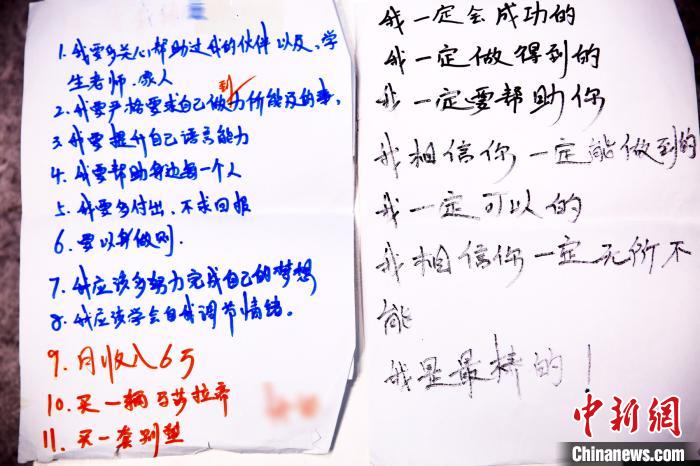 1. 我要多关心帮助过我的伙伴以及、学
生老师、家人
到
2. 我要严格要求自己做力所能及的事、
3. 我要提升自己语言能力
4. 我要帮助身边每一个人
5. 我要多付出、不求回报
6. 要以身做则.
7. 我应该多努力完成自己的梦想
8. 我应该学会自我调节情绪。
9. 月收入6万
10. 买一辆玛莎拉蒂
11. 买一套别墅
我一定会成功的
我一定做得到的
我一定要帮助你
我相信你一定能做到的
我一定可以的
我相信你一定无所不
能
我是最棒的!
中新网
Chinanews.com